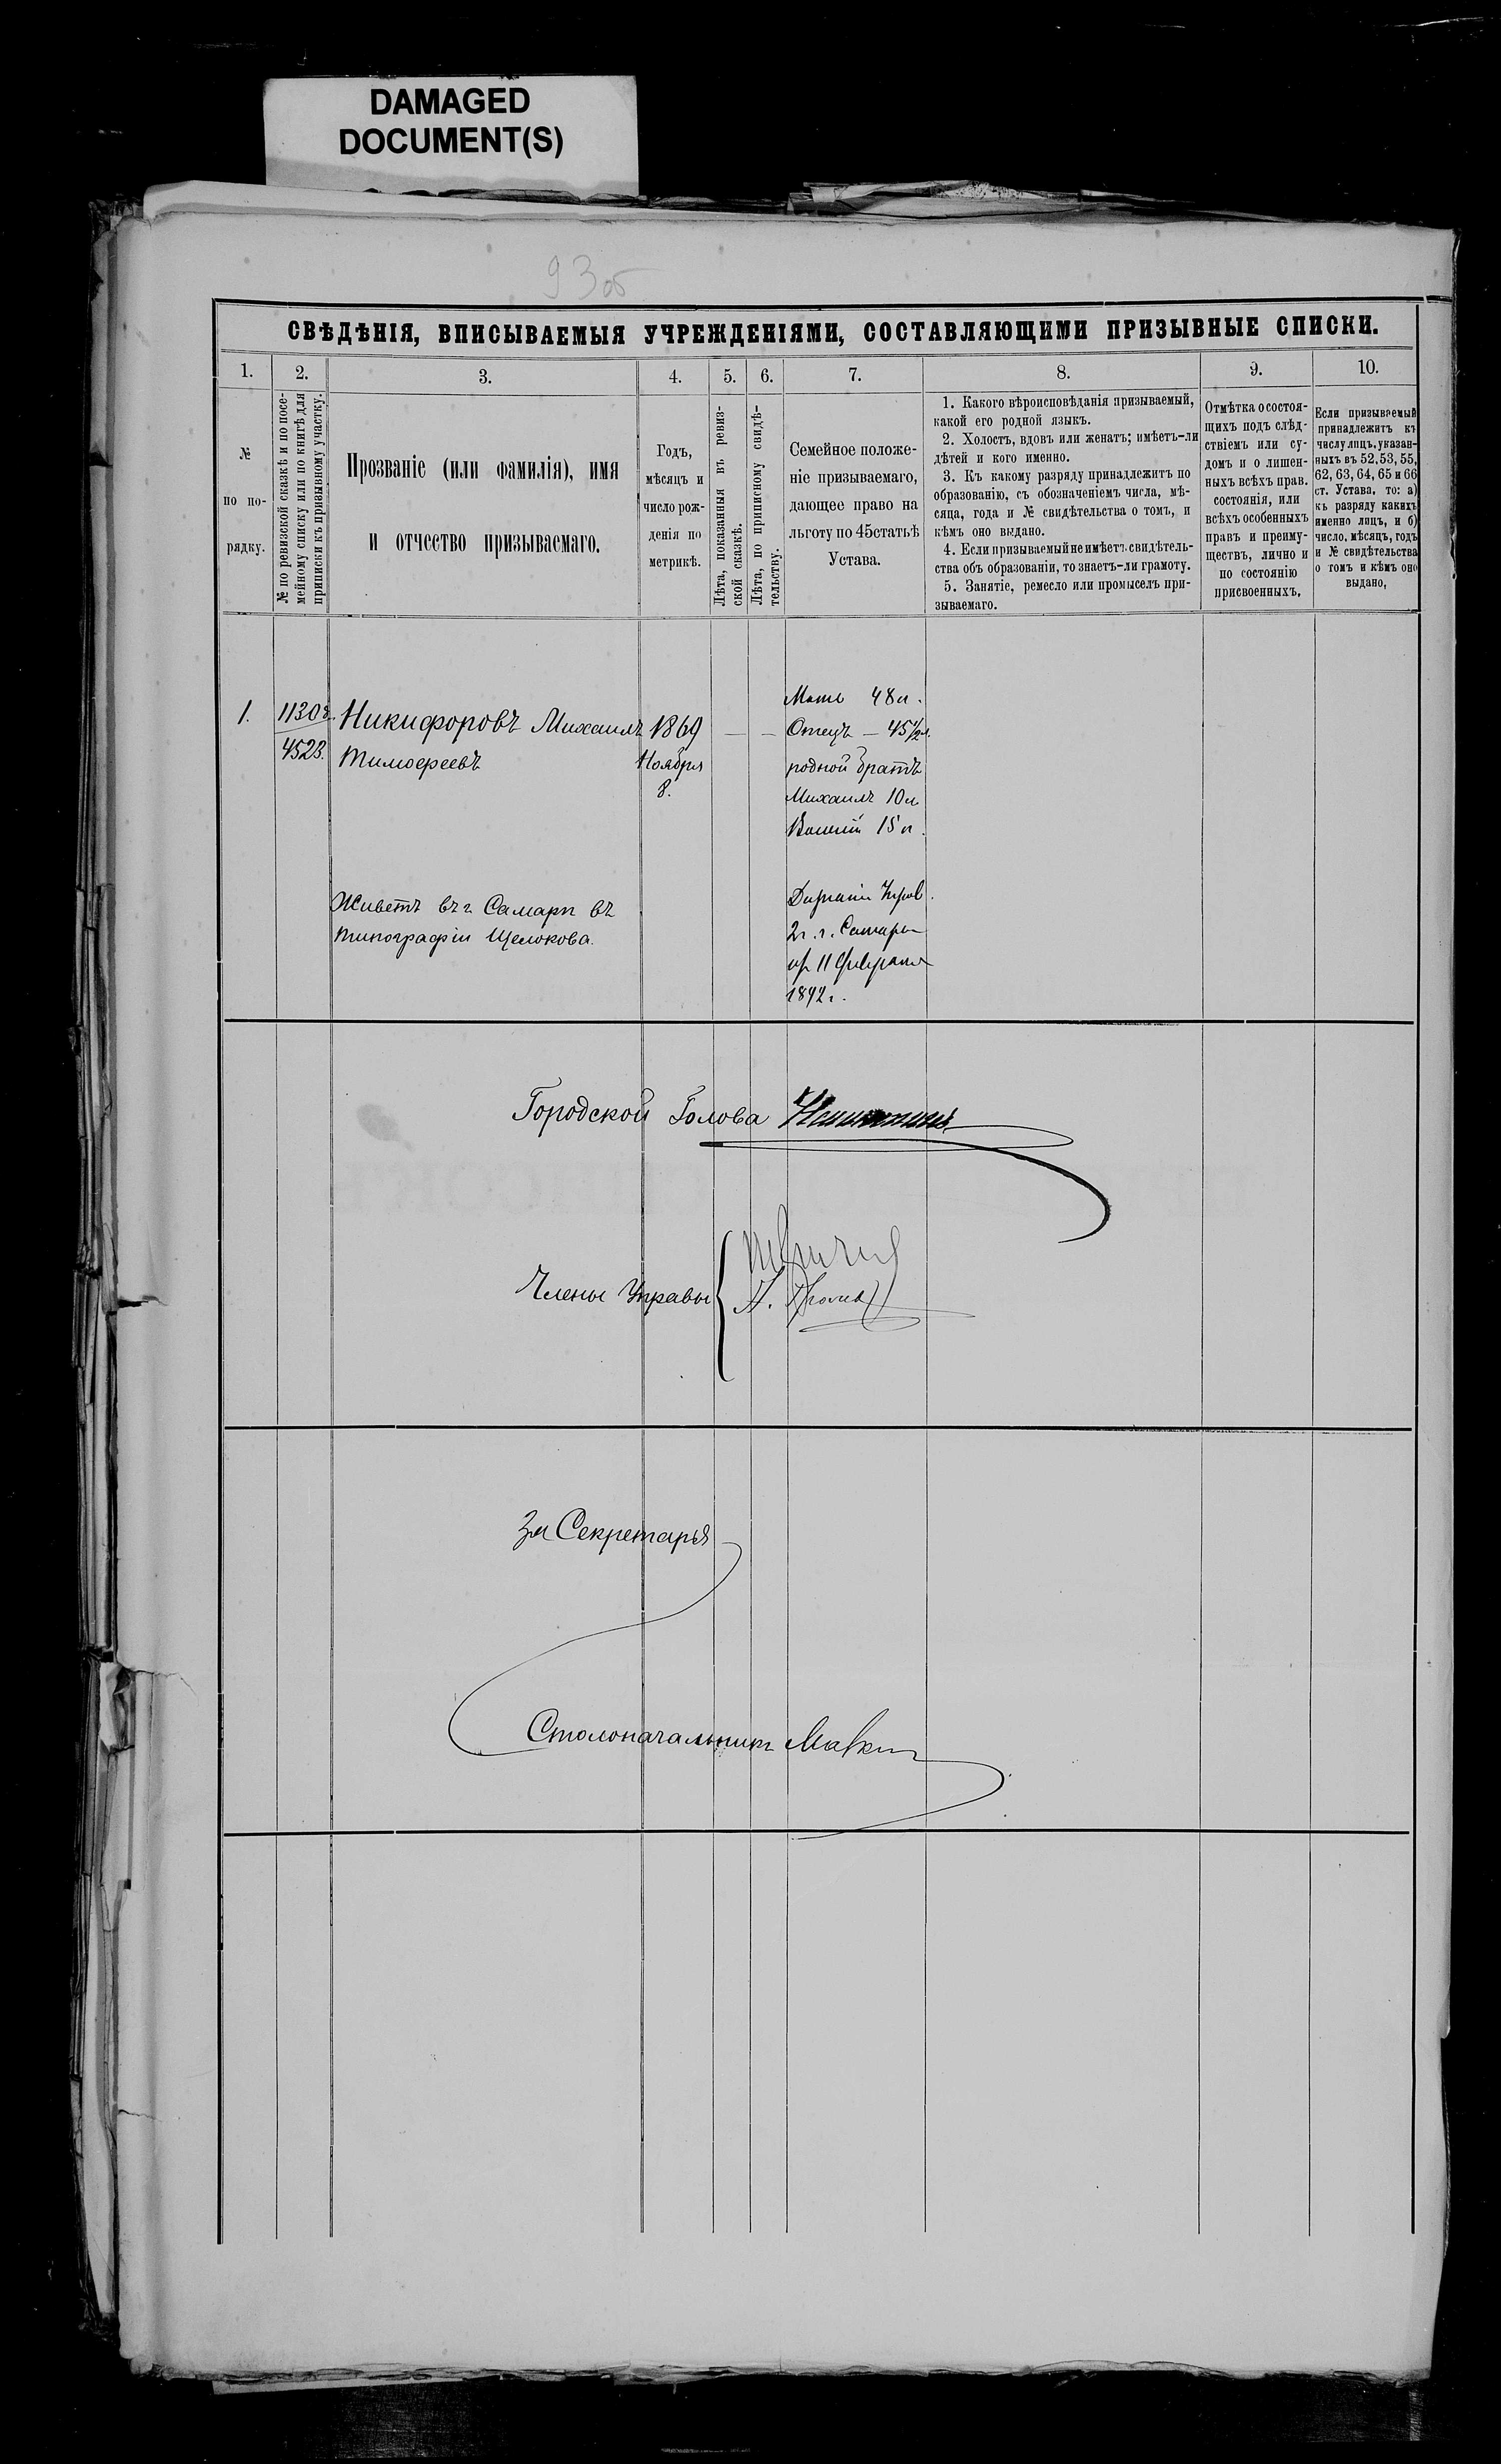 DAMAGED
DOCUMENT(S)
93об
СВѢДѢНІЯ, ВПИСЫВАЕМЫЯ УЧРЕЖДЕНІЯМИ, СОСТАВЛЯЮЩИМИ ПРИЗЫВНЫЕ СПИСКИ.
1.
2.
3.
4.
5.
6.
7.
8.
9.
10.
№
по по-
рядку.
№ по ревизской сказкѣ и по посе-
мейному списку или по книгѣ для
приписки къ призывному участку.
Прозваніе (или фамилія), имя
и отчество призываемаго.
Годъ,
мѣсяцъ и
число рож-
денія по
метрикѣ.
Лѣта, показанныя въ ревиз-
ской сказкѣ.
Лѣта, по приписному свидѣ-
тельству.
Семейное положе-
ніе призываемаго,
дающее право на
льготу по 45 статьѣ
Устава.
1. Какого вѣроисповѣданія призываемый,
какой его родной языкъ.
2. Холостъ, вдовъ или женатъ; имѣетъ-ли
дѣтей и кого именно.
3. Къ какому разряду принадлежитъ по
образованію, съ обозначеніемъ числа, мѣ-
сяца, года и № свидѣтельства о томъ, и
кѣмъ оно выдано.
4. Если призываемый не имѣетъ свидѣтель-
ства объ образованіи, то знаетъ-ли грамоту.
5. Занятіе, ремесло или промыселъ при-
зываемаго.
Отмѣтка о состоя-
щихъ подъ слѣд-
ствіемъ или су-
домъ и о лишен-
ныхъ всѣхъ прав.
состоянія, или
всѣхъ особенныхъ
правъ и преиму-
ществъ, лично и
по состоянію
присвоенныхъ.
Если призываемый
принадлежитъ къ
числу лицъ, указан-
ныхъ въ 52, 53, 55,
62, 63, 64, 65 и 66
ст. Устава, то: а)
къ разряду какихъ
именно лицъ, и б)
число, мѣсяцъ, годъ
и № свидѣтельства
о томъ и кѣмъ оно
выдано.
1.
11308.
4523.
Никифоровъ Михаилъ
Тимофеевъ
1869
Ноября
8.
—
—
Мать 48 л.
Отецъ — 45½ л.
родной братъ
Михаилъ 10 л
15 л.
Живетъ въ г Самарѣ въ
типографіи Щелокова.
2 г. г. Самары
11 февраля
1892 г.
Городской Голова
Члены Управы
За Секретаря
Столоначальникъ